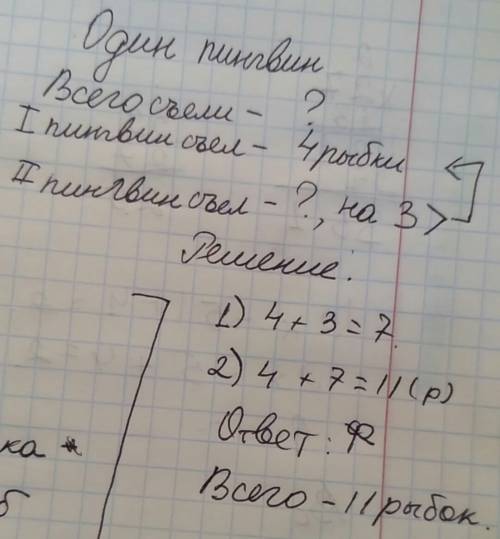 Один пингвин
Всего съели - ?
I пингвин съел - 4 рыбки
II пингвин съел - ?, на 3 >
Решение:
1) 4 + 3 = 7.
2) 4 + 7 = 11 (р)
Ответ:
Всего - 11 рыбок.
ка
б